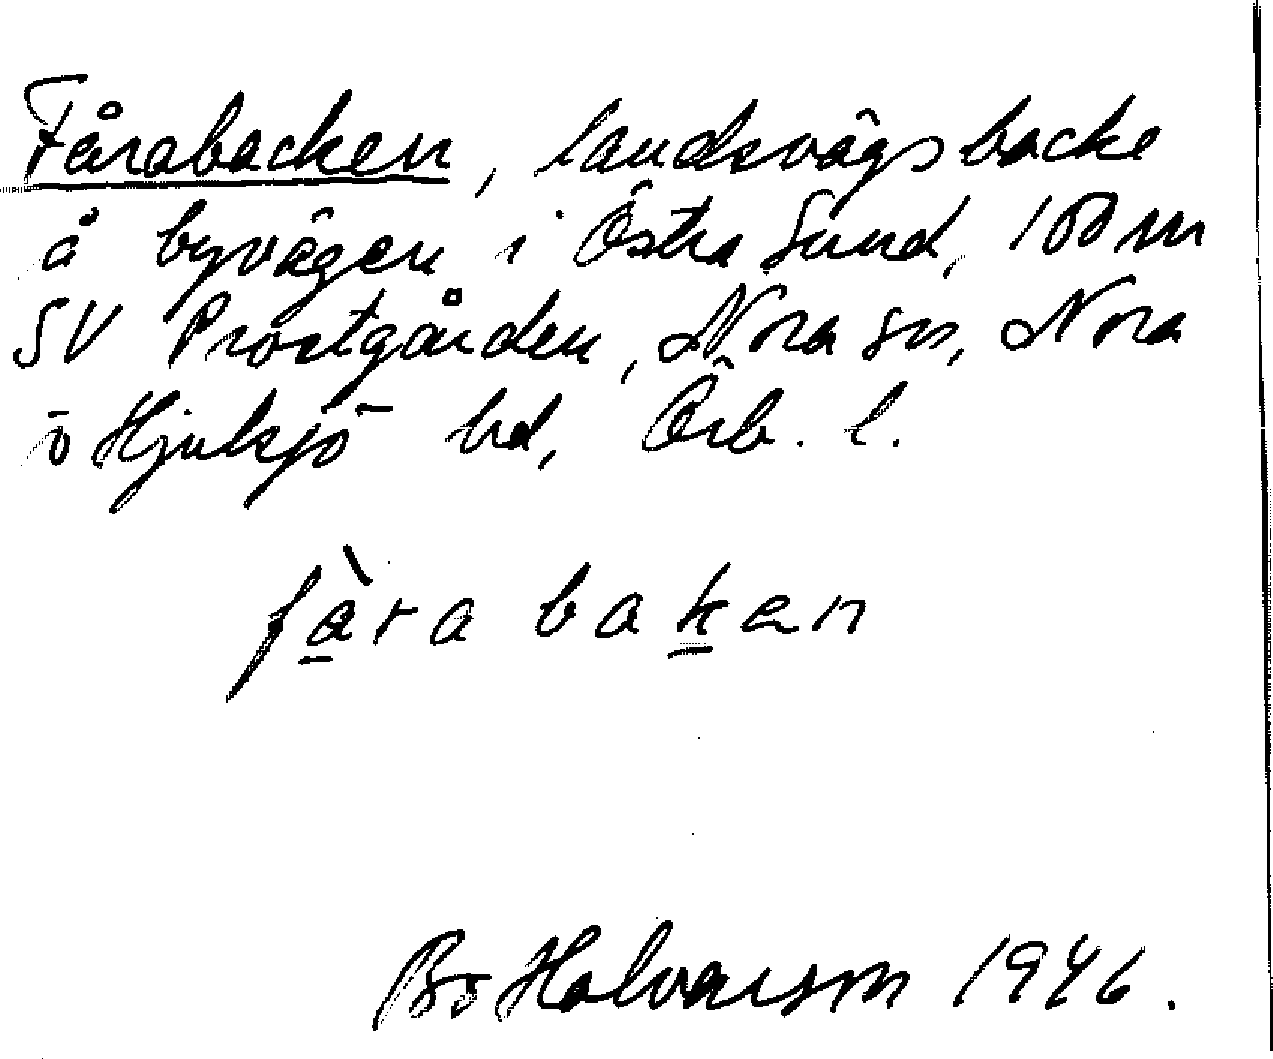 Fårabacken, landsvägsbacke
å byvägen i Östra Sund, 100 m
SV Prostgården, Nora sn, Nora
o Hjulsjö bd, Örb. l.
fàra baken
Bo Halvarson 1946.